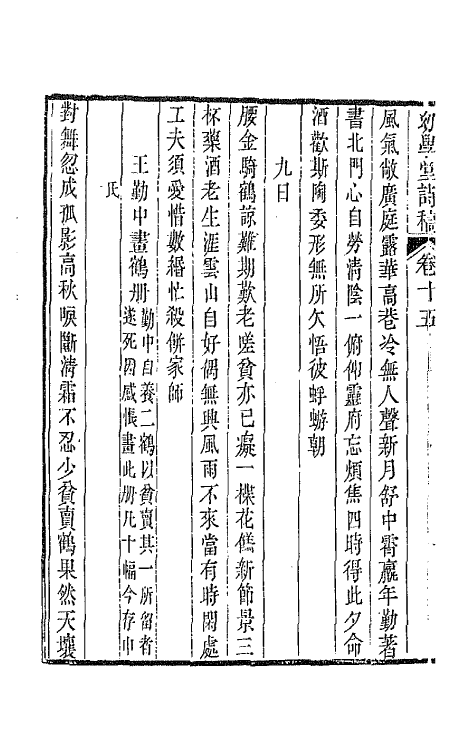 幼學堂詩稿 卷十五
風氣敞廣庭露華高巷冷無人聲新月舒中霄羸年勤著
書北門心自勞清陰一俯仰靈府忘煩焦四時得此夕命
酒歡斯陶委形無所欠悟彼蜉蝣朝
九日
腰金騎鶴諒難期歎老嗟貧亦已癡一檏花僬新節景三
杯藥酒老生涯雲山自好偶無興風雨不來當有時閑處
工夫須愛惜數緡忙殺併家師
王勤中畫鶴册勤中自養二鶴以貧賣其一所留者
遂死因感悵畫此册凡十幅今存申
氏
對舞忽成孤影高秋唳斷清霜不忍少貧賣鶴果然天壤